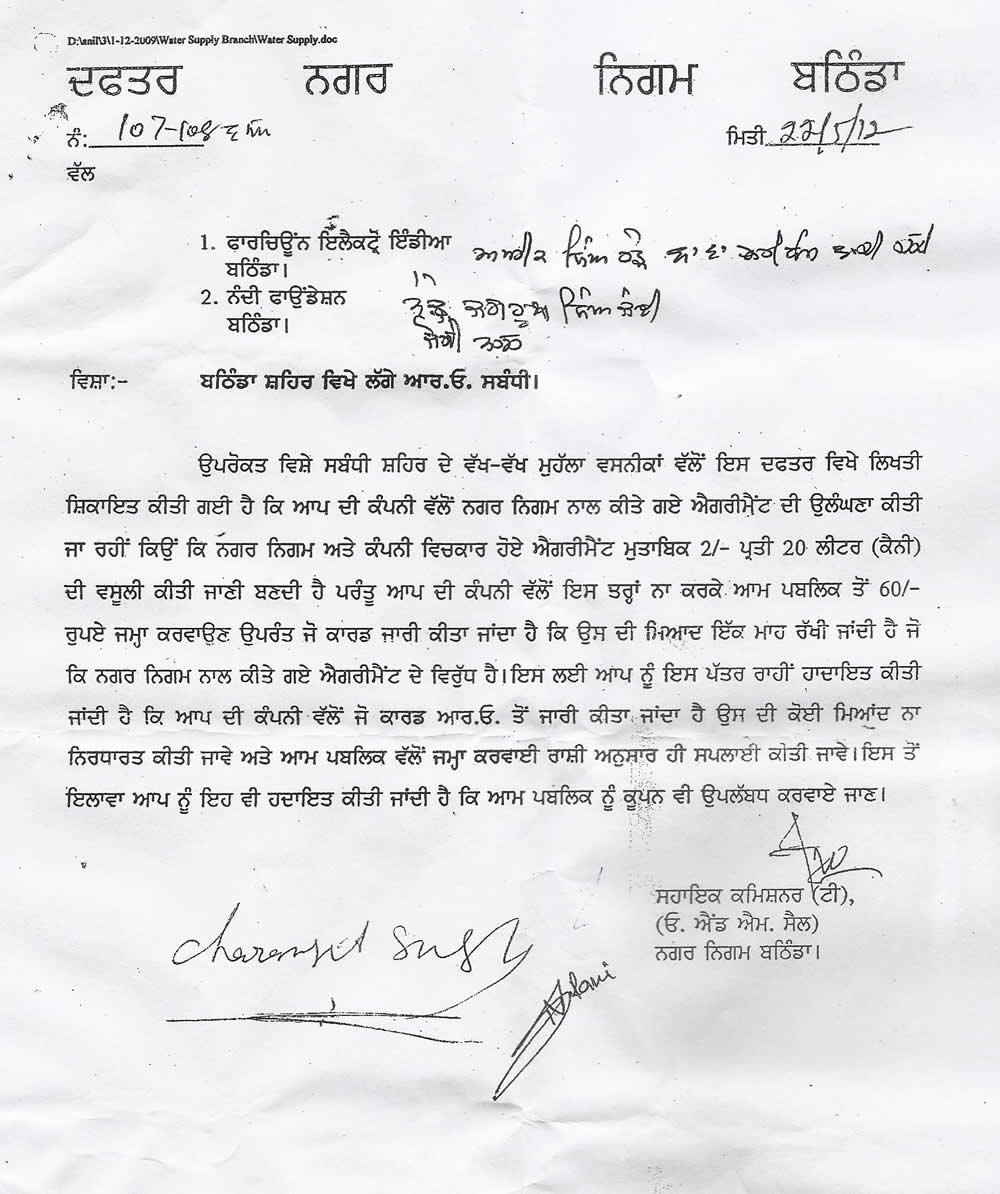 D:\anil\3\1-12-2009\Water Supply Branch\Water Supply.doc
ਦਫਤਰ ਨਗਰ ਨਿਗਮ ਬਠਿੰਡਾ
ਨੰ: 107-108 ਮਿਤੀ 22/5/12
ਵੱਲ
1. ਫਾਰਚਿਊਨ ਇਲੈਕਟ੍ਰੋ ਇੰਡੀਆ
ਬਠਿੰਡਾ।
2. ਨੰਦੀ ਫਾਊਂਡੇਸ਼ਨ
ਬਠਿੰਡਾ।
ਵਿਸ਼ਾ:- ਬਠਿੰਡਾ ਸ਼ਹਿਰ ਵਿਖੇ ਲੱਗੇ ਆਰ.ਓ. ਸਬੰਧੀ।
ਉਪਰੋਕਤ ਵਿਸ਼ੇ ਸਬੰਧੀ ਸ਼ਹਿਰ ਦੇ ਵੱਖ-ਵੱਖ ਮੁਹੱਲਾ ਵਸਨੀਕਾਂ ਵੱਲੋਂ ਇਸ ਦਫਤਰ ਵਿਖੇ ਲਿਖਤੀ
ਸ਼ਿਕਾਇਤ ਕੀਤੀ ਗਈ ਹੈ ਕਿ ਆਪ ਦੀ ਕੰਪਨੀ ਵੱਲੋਂ ਨਗਰ ਨਿਗਮ ਨਾਲ ਕੀਤੇ ਗਏ ਐਗਰੀਮੈਂਟ ਦੀ ਉਲੰਘਣਾ ਕੀਤੀ
ਜਾ ਰਹੀਂ ਕਿਉਂ ਕਿ ਨਗਰ ਨਿਗਮ ਅਤੇ ਕੰਪਨੀ ਵਿਚਕਾਰ ਹੋਏ ਐਗਰੀਮੈਂਟ ਮੁਤਾਬਿਕ 2/- ਪ੍ਰਤੀ 20 ਲੀਟਰ (ਕੈਨੀ)
ਦੀ ਵਸੂਲੀ ਕੀਤੀ ਜਾਣੀ ਬਣਦੀ ਹੈ ਪਰੰਤੂ ਆਪ ਦੀ ਕੰਪਨੀ ਵੱਲੋਂ ਇਸ ਤਰ੍ਹਾਂ ਨਾ ਕਰਕੇ ਆਮ ਪਬਲਿਕ ਤੋਂ 60/-
ਰੁਪਏ ਜਮ੍ਹਾ ਕਰਵਾਉਣ ਉਪਰੰਤ ਜੋ ਕਾਰਡ ਜਾਰੀ ਕੀਤਾ ਜਾਂਦਾ ਹੈ ਕਿ ਉਸ ਦੀ ਮਿਆਦ ਇੱਕ ਮਾਹ ਰੱਖੀ ਜਾਂਦੀ ਹੈ ਜੋ
ਕਿ ਨਗਰ ਨਿਗਮ ਨਾਲ ਕੀਤੇ ਗਏ ਐਗਰੀਮੈਂਟ ਦੇ ਵਿਰੁੱਧ ਹੈ।ਇਸ ਲਈ ਆਪ ਨੂੰ ਇਸ ਪੱਤਰ ਰਾਹੀਂ ਹਾਦਾਇਤ ਕੀਤੀ
ਜਾਂਦੀ ਹੈ ਕਿ ਆਪ ਦੀ ਕੰਪਨੀ ਵੱਲੋਂ ਜੋ ਕਾਰਡ ਆਰ.ਓ. ਤੋਂ ਜਾਰੀ ਕੀਤਾ ਜਾਂਦਾ ਹੈ ਉਸ ਦੀ ਕੋਈ ਮਿਆਂਦ ਨਾ
ਨਿਰਧਾਰਤ ਕੀਤੀ ਜਾਵੇ ਅਤੇ ਆਮ ਪਬਲਿਕ ਵੱਲੋਂ ਜਮ੍ਹਾ ਕਰਵਾਈ ਰਾਸ਼ੀ ਅਨੁਸਾਰ ਹੀ ਸਪਲਾਈ ਕੀਤੀ ਜਾਵੇ।ਇਸ ਤੋਂ
ਇਲਾਵਾ ਆਪ ਨੂੰ ਇਹ ਵੀ ਹਦਾਇਤ ਕੀਤੀ ਜਾਂਦੀ ਹੈ ਕਿ ਆਮ ਪਬਲਿਕ ਨੂੰ ਕੂਪਨ ਵੀ ਉਪਲੱਬਧ ਕਰਵਾਏ ਜਾਣ।
ਸਹਾਇਕ ਕਮਿਸ਼ਨਰ (ਟੀ),
(ਓ. ਐਂਡ ਐਮ. ਸੈਲ)
ਨਗਰ ਨਿਗਮ ਬਠਿੰਡਾ।
Charanjit Singh